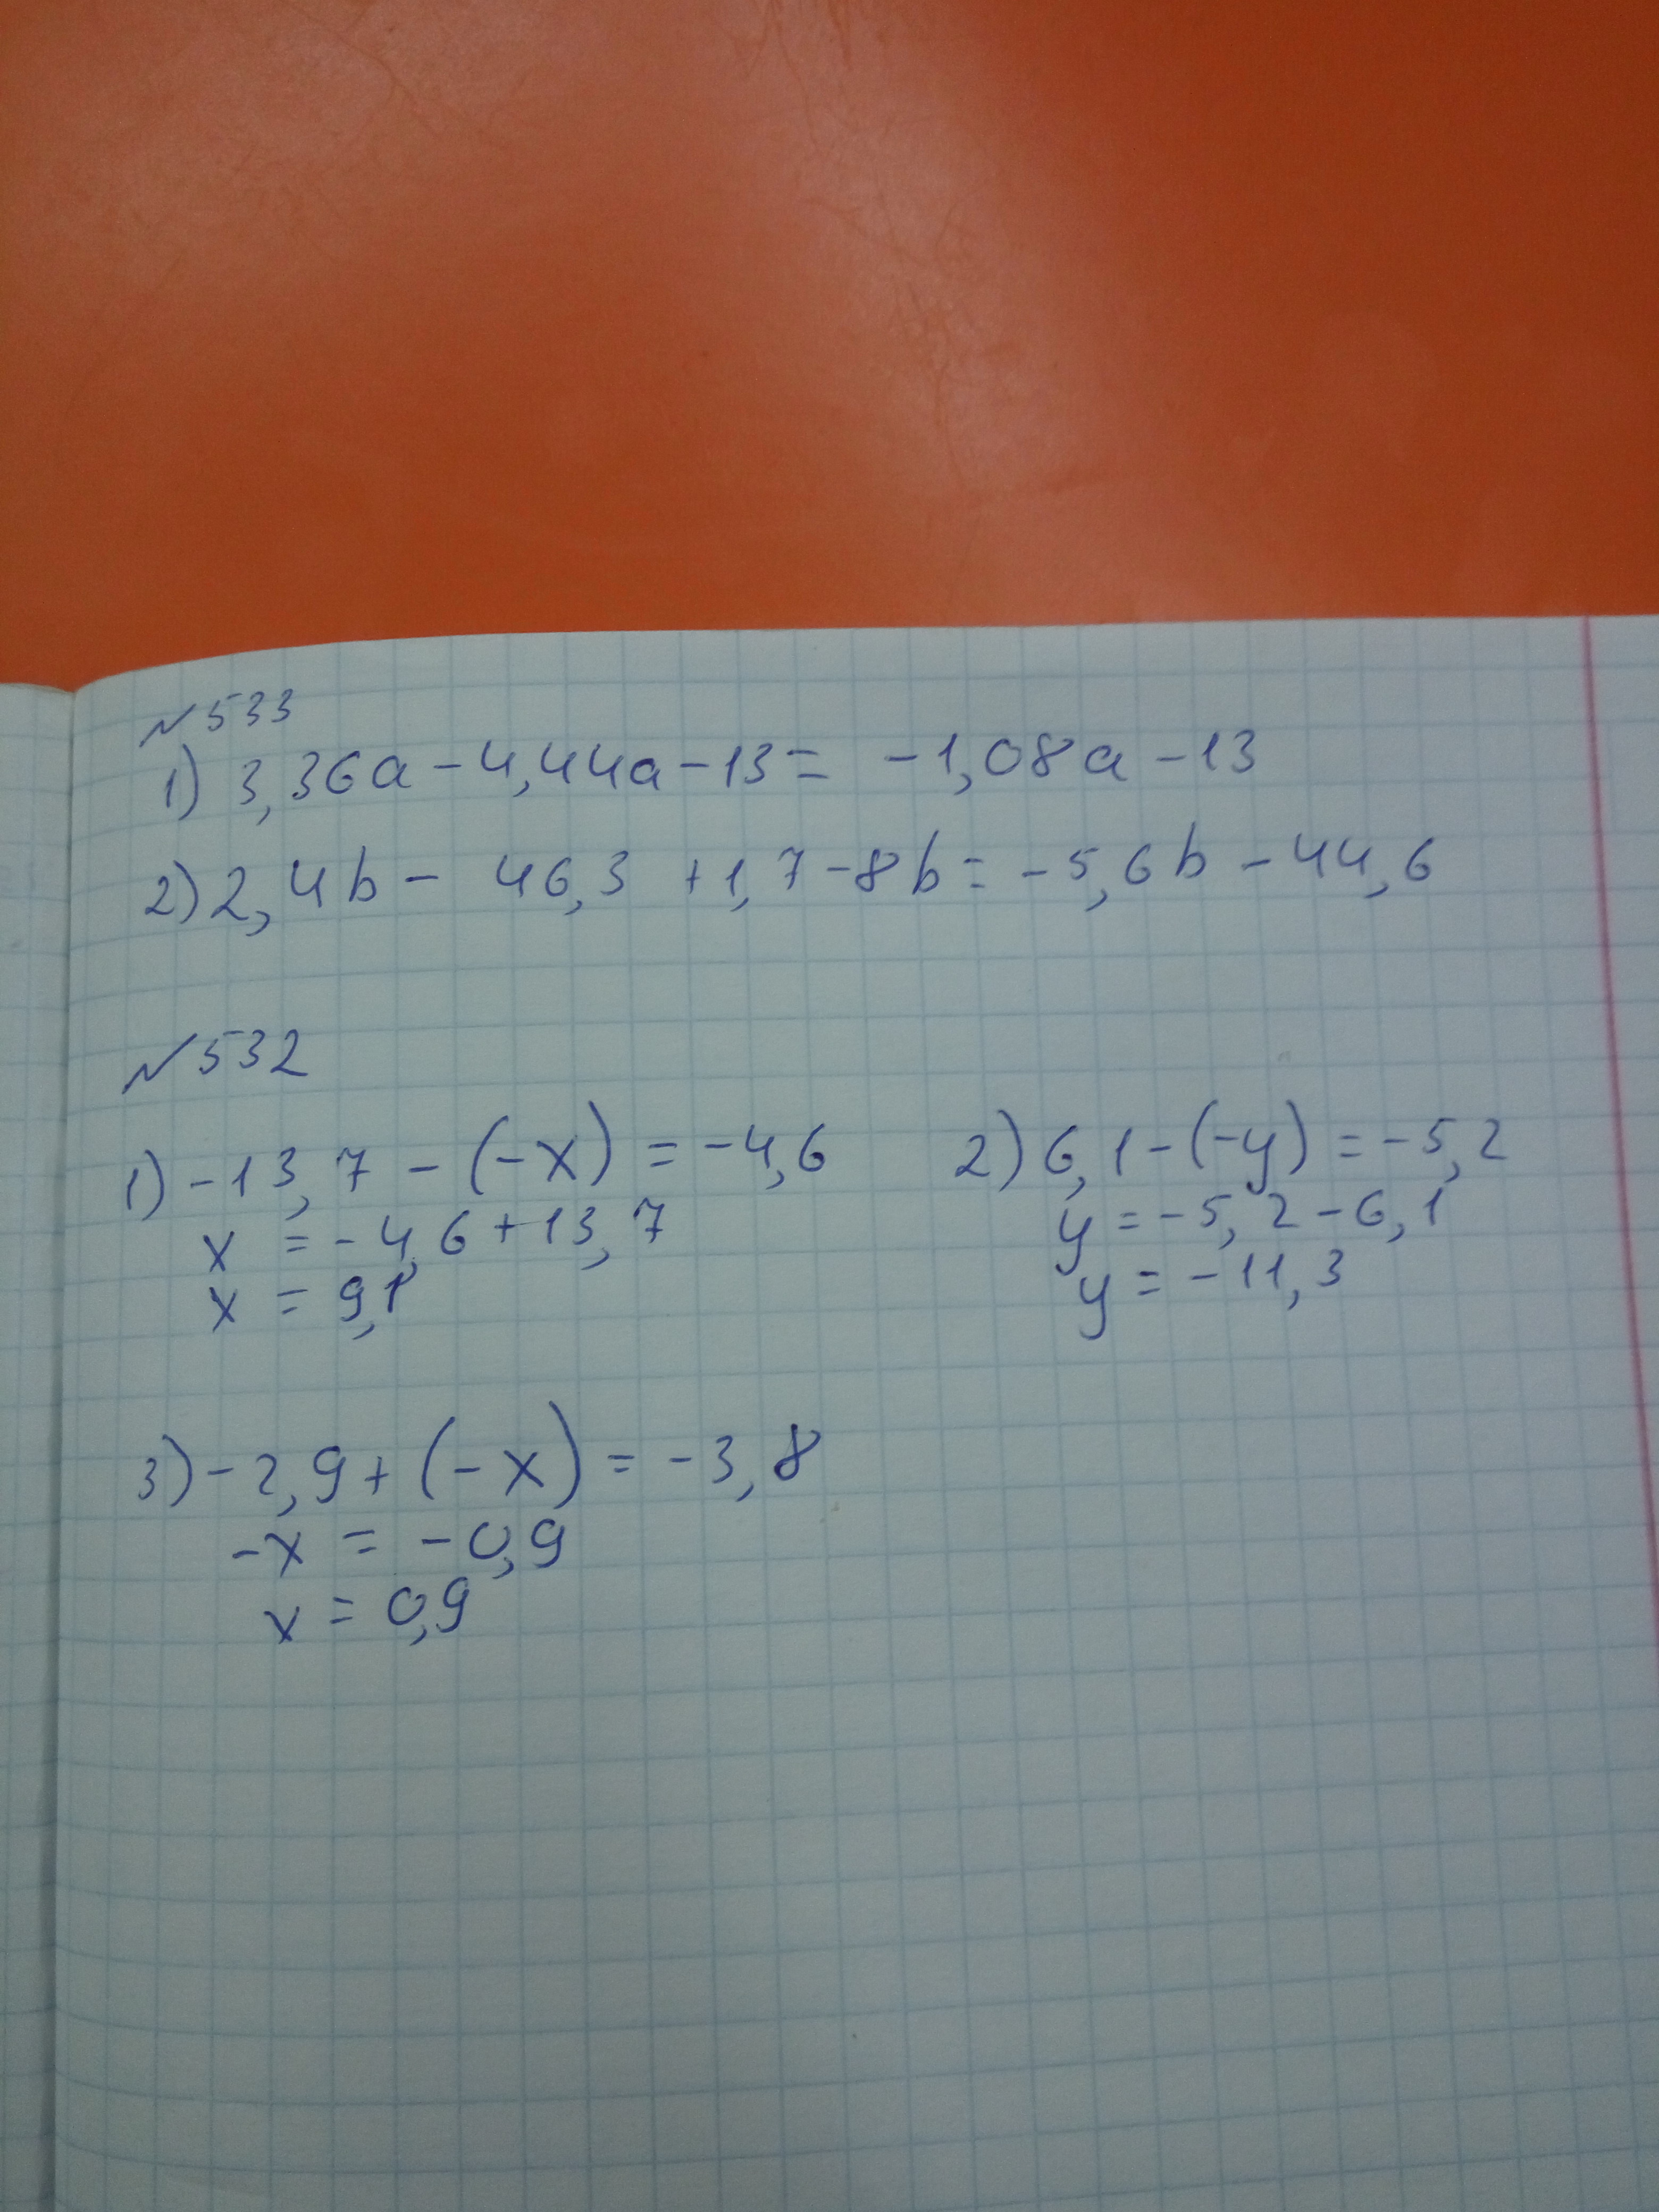 №533
1) 3,36a - 4,44a - 13 = -1,08a - 13
2) 2,4b - 46,3 + 1,7 - 8b = -5,6b - 44,6
№532
1) -13,7 - (-x) = -4,6
x = -4,6 + 13,7
x = 9,1
2) 6,1 - (-y) = -5,2
y = -5,2 - 6,1
y = -11,3
3) -2,9 + (-x) = -3,8
-x = -0,9
x = 0,9